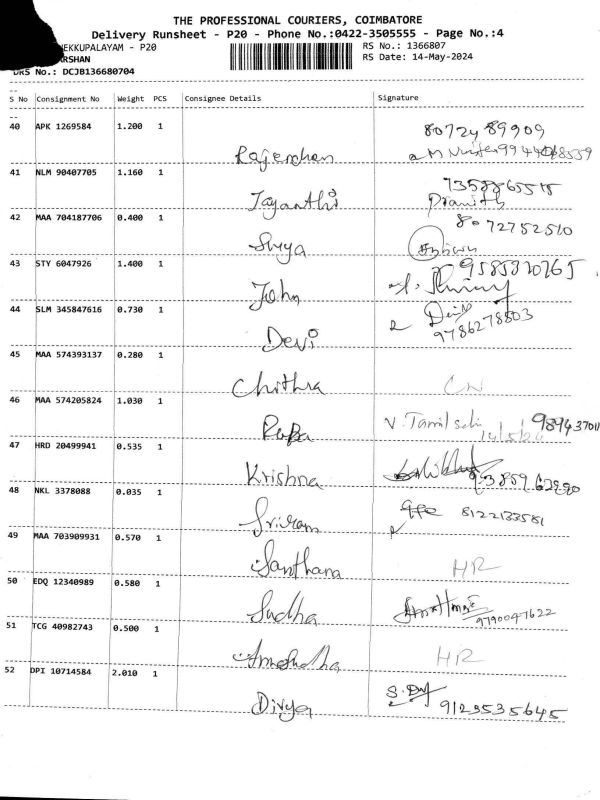 THE PROFESSIONAL COURIERS, COIMBATORE
Delivery Runsheet - P20 - Phone No.:0422-3505555 - Page No.:4
NEKKUPALAYAM - P20
RS No.: 1366807
ARSHAN
RS Date: 14-May-2024
DRS No.: DCJB136680704
S No Consignment No Weight PCS Consignee Details Signature
40 APK 1269584 1.200 1
Rajendhan
41 NLM 90407705 1.160 1
7358865515
Jayanthi
42 MAA 704187706 0.400 1
8072752510
Surya
43 STY 6047926 1.400 1
9585320265
John
44 SLM 345847616 0.730 1
Devi
9786278803
45 MAA 574393137 0.280 1
Chithra CN
46 MAA 574205824 1.030 1
V. Tamil selvi 989437011
14/5/24
47 HRD 20499941 0.535 1
Krishna
48 NKL 3378088 0.035 1
8122133581
Sriram
49 MAA 703909931 0.570 1
Santhana HR
50 EDQ 12340989 0.580 1
Sudha
9790047622
51 TCG 40982743 0.500 1
Anusudha HR
52 DPI 10714584 2.010 1
Divya 9123535645